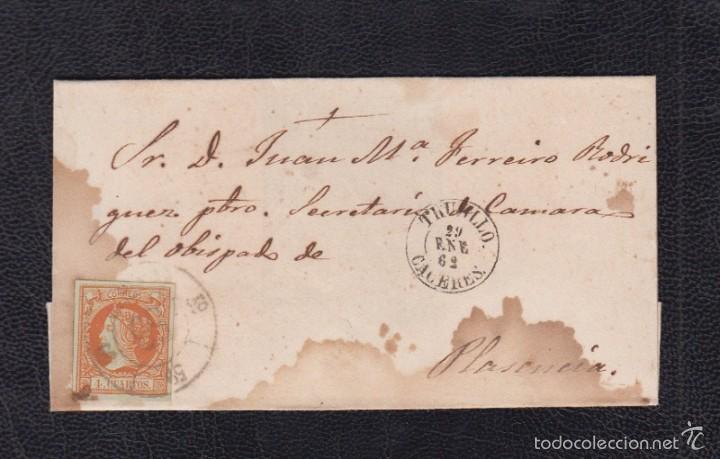 Sr. D. Juan Mª. Ferreiro Rodri
guez. pbro. Secretario Camara
del Obispado de
Plasencia.
TRUJILLO.
29
ENE
62
CACERES.
CORREOS
4 CUARTOS
todocoleccion.net